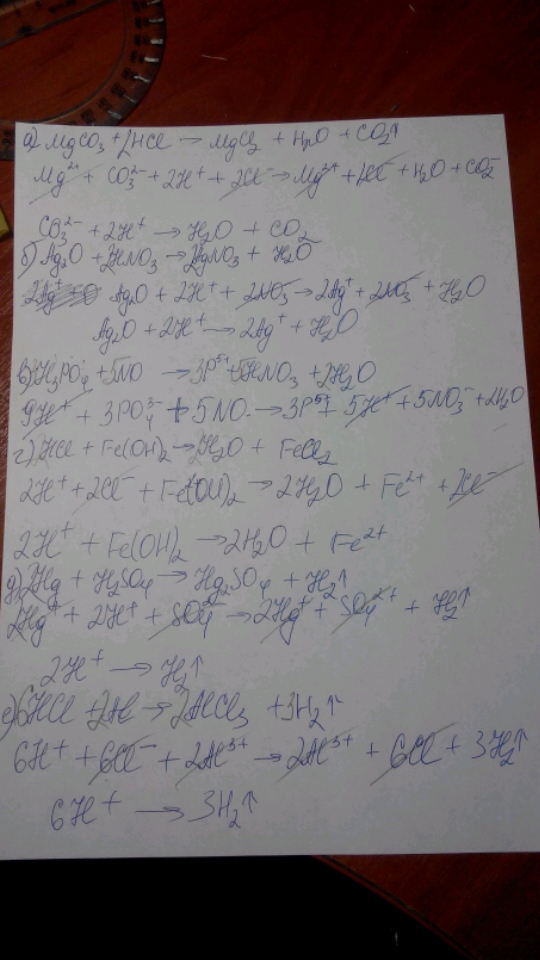 а) MgCO₃ + 2HCl → MgCl₂ + H₂O + CO₂↑
Mg²⁺ + CO₃²⁻ + 2H⁺ + 2Cl⁻ → Mg²⁺ + 2Cl⁻ + H₂O + CO₂
CO₃²⁻ + 2H⁺ → H₂O + CO₂
б) Ag₂O + 2HNO₃ → 2AgNO₃ + H₂O
Ag₂O + 2H⁺ + 2NO₃⁻ → 2Ag⁺ + 2NO₃⁻ + H₂O
Ag₂O + 2H⁺ → 2Ag⁺ + H₂O
в) 3H₃PO₄ + 5NO → 3P⁵⁺ 5HNO₃ + 2H₂O
9H⁺ + 3PO₄³⁻ + 5NO → 3P⁵⁺ 5H⁺ + 5NO₃⁻ + 2H₂O
г) 2HCl + Fe(OH)₂ → 2H₂O + FeCl₂
2H⁺ + 2Cl⁻ + Fe(OH)₂ → 2H₂O + Fe²⁺ + 2Cl⁻
2H⁺ + Fe(OH)₂ → 2H₂O + Fe²⁺
д) 2Hg + H₂SO₄ → Hg₂SO₄ + H₂↑
2Hg⁺ + 2H⁺ + SO₄²⁻ → 2Hg⁺ + SO₄²⁺ + H₂↑
2H⁺ → H₂↑
е) 6HCl + 2Al → 2AlCl₃ + 3H₂↑
6H⁺ + 6Cl⁻ + 2Al³⁺ → 2Al³⁺ + 6Cl⁻ + 3H₂↑
6H⁺ → 3H₂↑